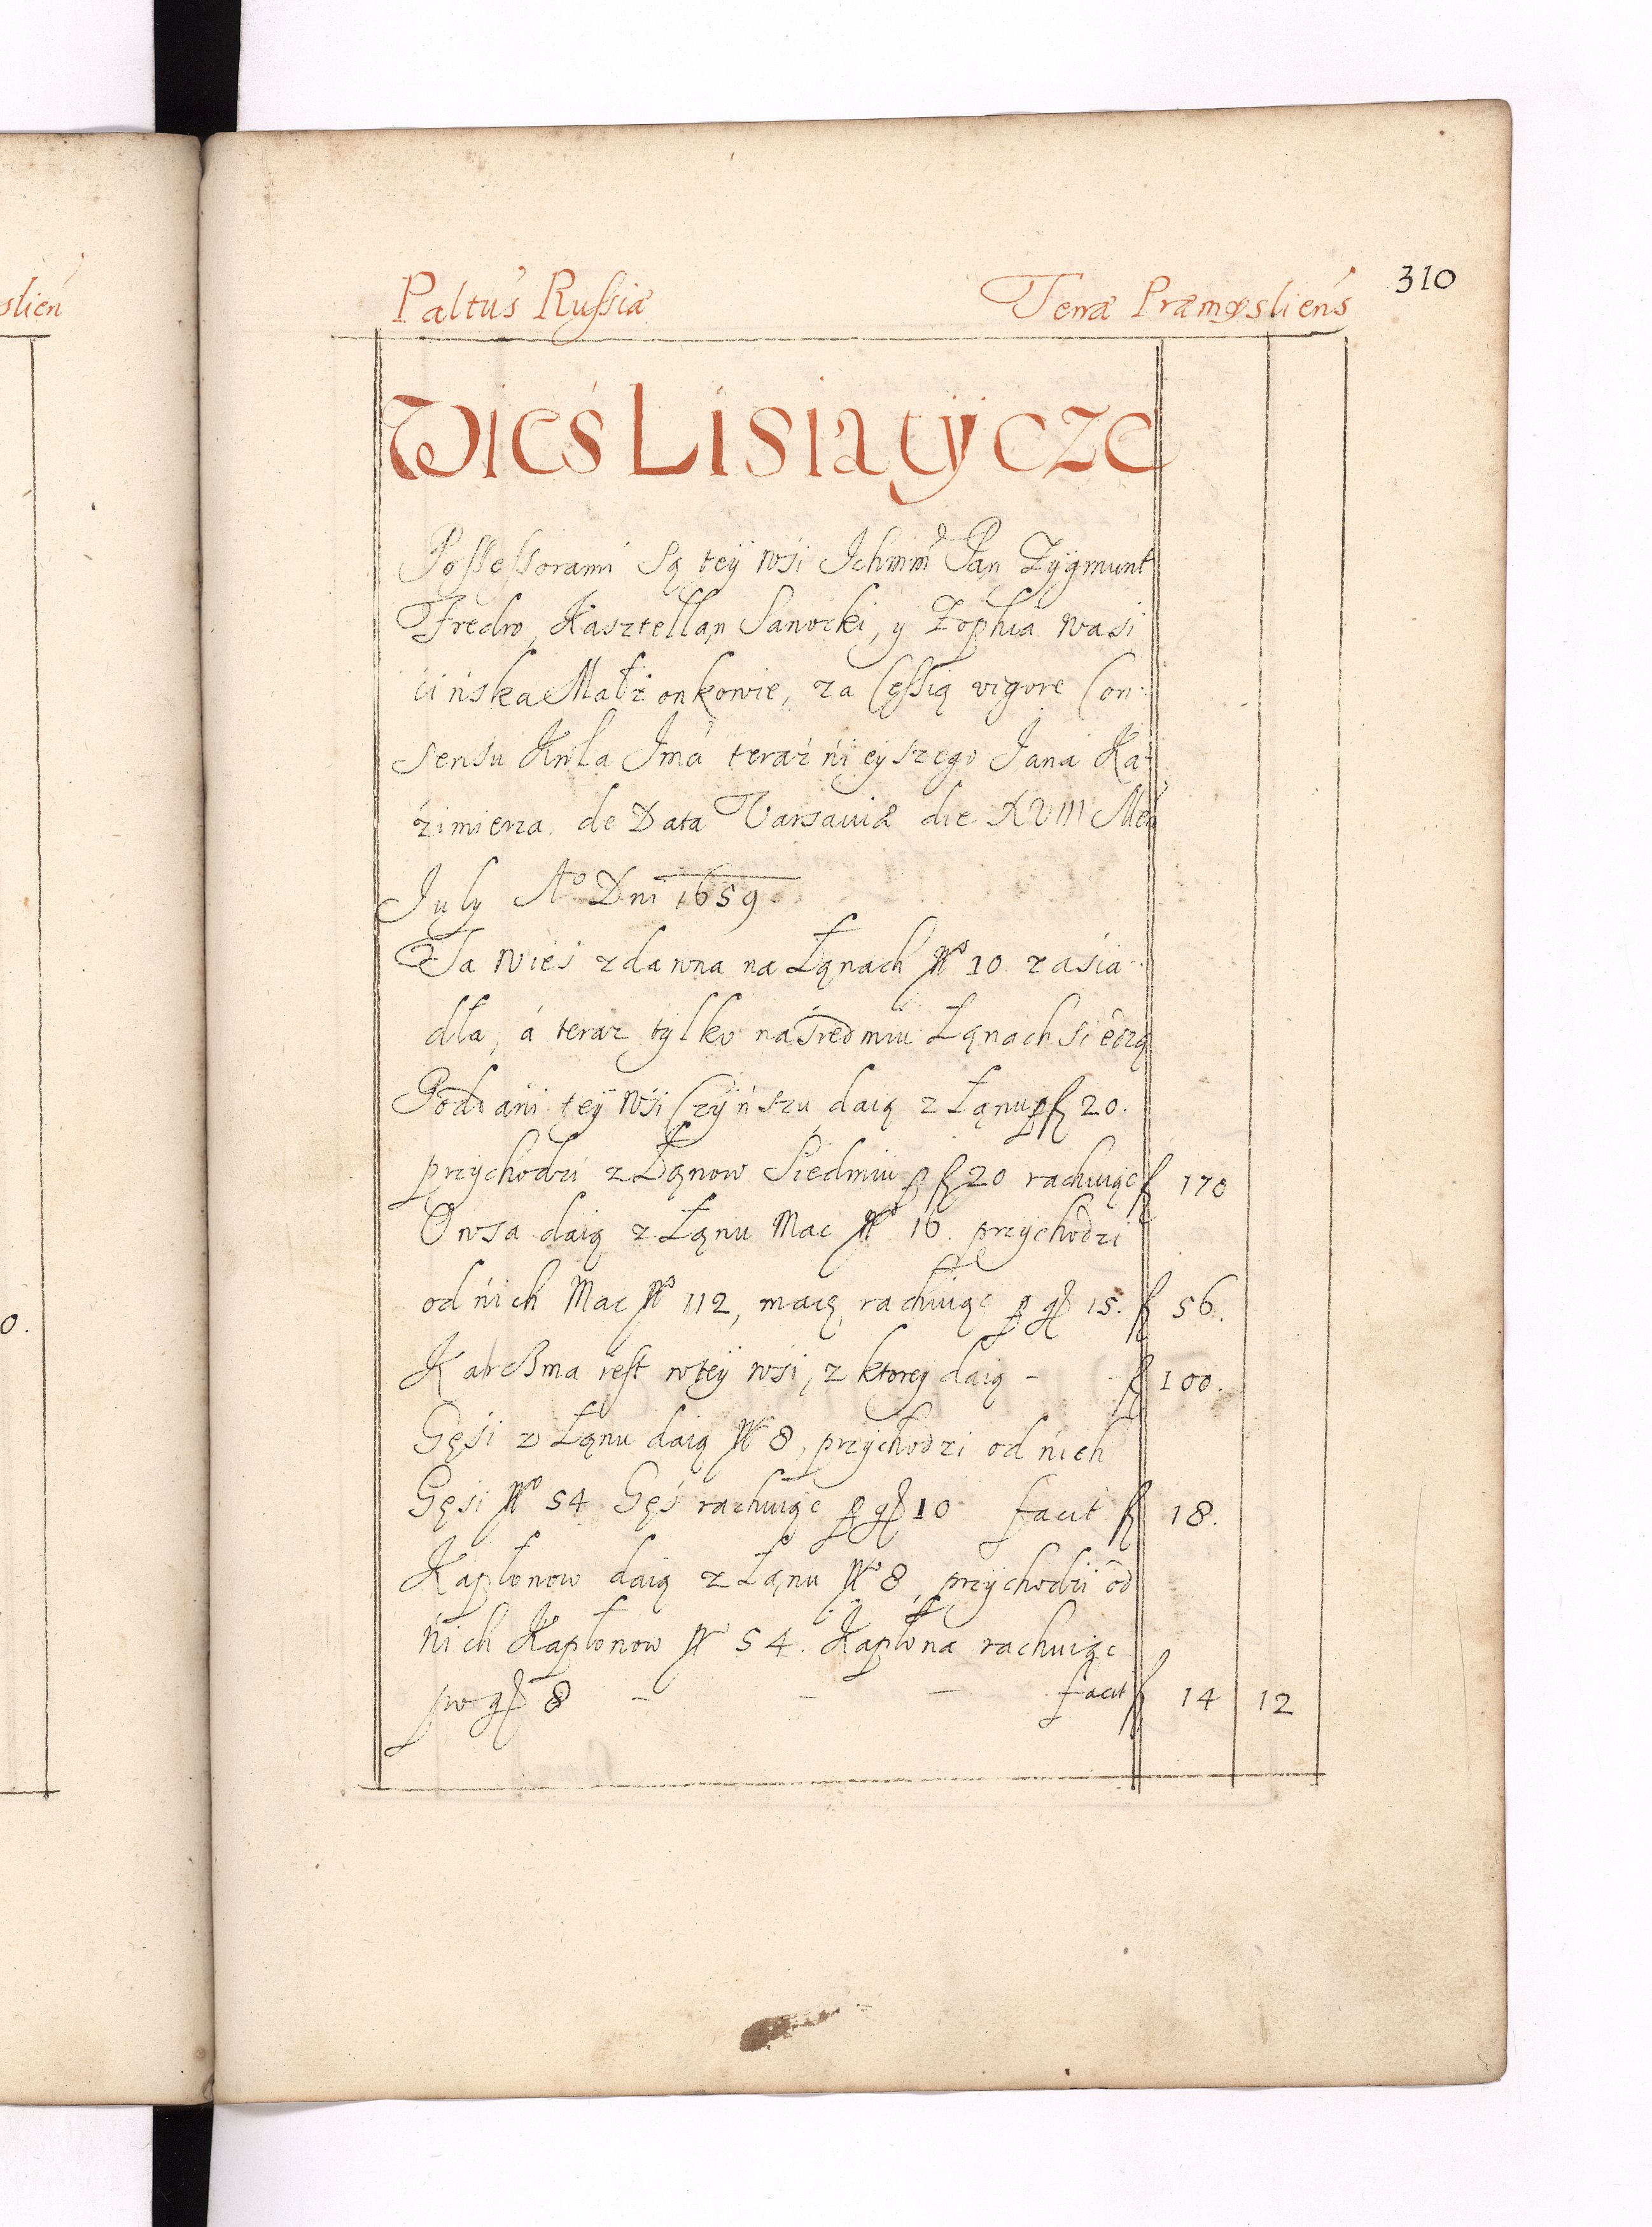 slień
0.
Paltus Russiæ Terræ Præmysliens 310
Wieś Lisiatÿcze
Possessorami Są teÿ wsi Ichmm Pan Zÿgmunt
Fredro, Kasztellan Sanocki, y Zophia Wasi
cińska Małżonkowie, za Cessią vigore Con-
sensu Krla Jmci teraźnieÿszego Jana Ka-
źimierza, de Data Varsaviæ die XVIII Men
July Ao Dni 1659
Ta wieś zdawna na Łąnach No 10 zasia-
dła, á teraz tÿlko na śiedmiu Łąnach siedzą
Poddani teÿ wśi Czÿnszu daią z Łąnu p fl 20.
przÿchodzi z Łąnow Siedmiu p fl 20 rachuiąc fl 170
Owsa daią z Łąnu Mac No 16. przÿchodzi
od nich Mac No 112, macę rachuiąc p gr 15. fl 56.
Karcżma iest w teÿ wśi, z ktoreÿ daią - fl 100.
Gęśi z Łąnu daią No 8, przÿchodzi od nich
Gęsi No 54 Gęś rachuiąc p gr 10 facit fl 18.
Kapłonow daią z Łąnu No 8, przÿchodzi od
nich Kapłonow No 54. Kapłona rachuiąc
po gr 8 - - - facit fl 14 12